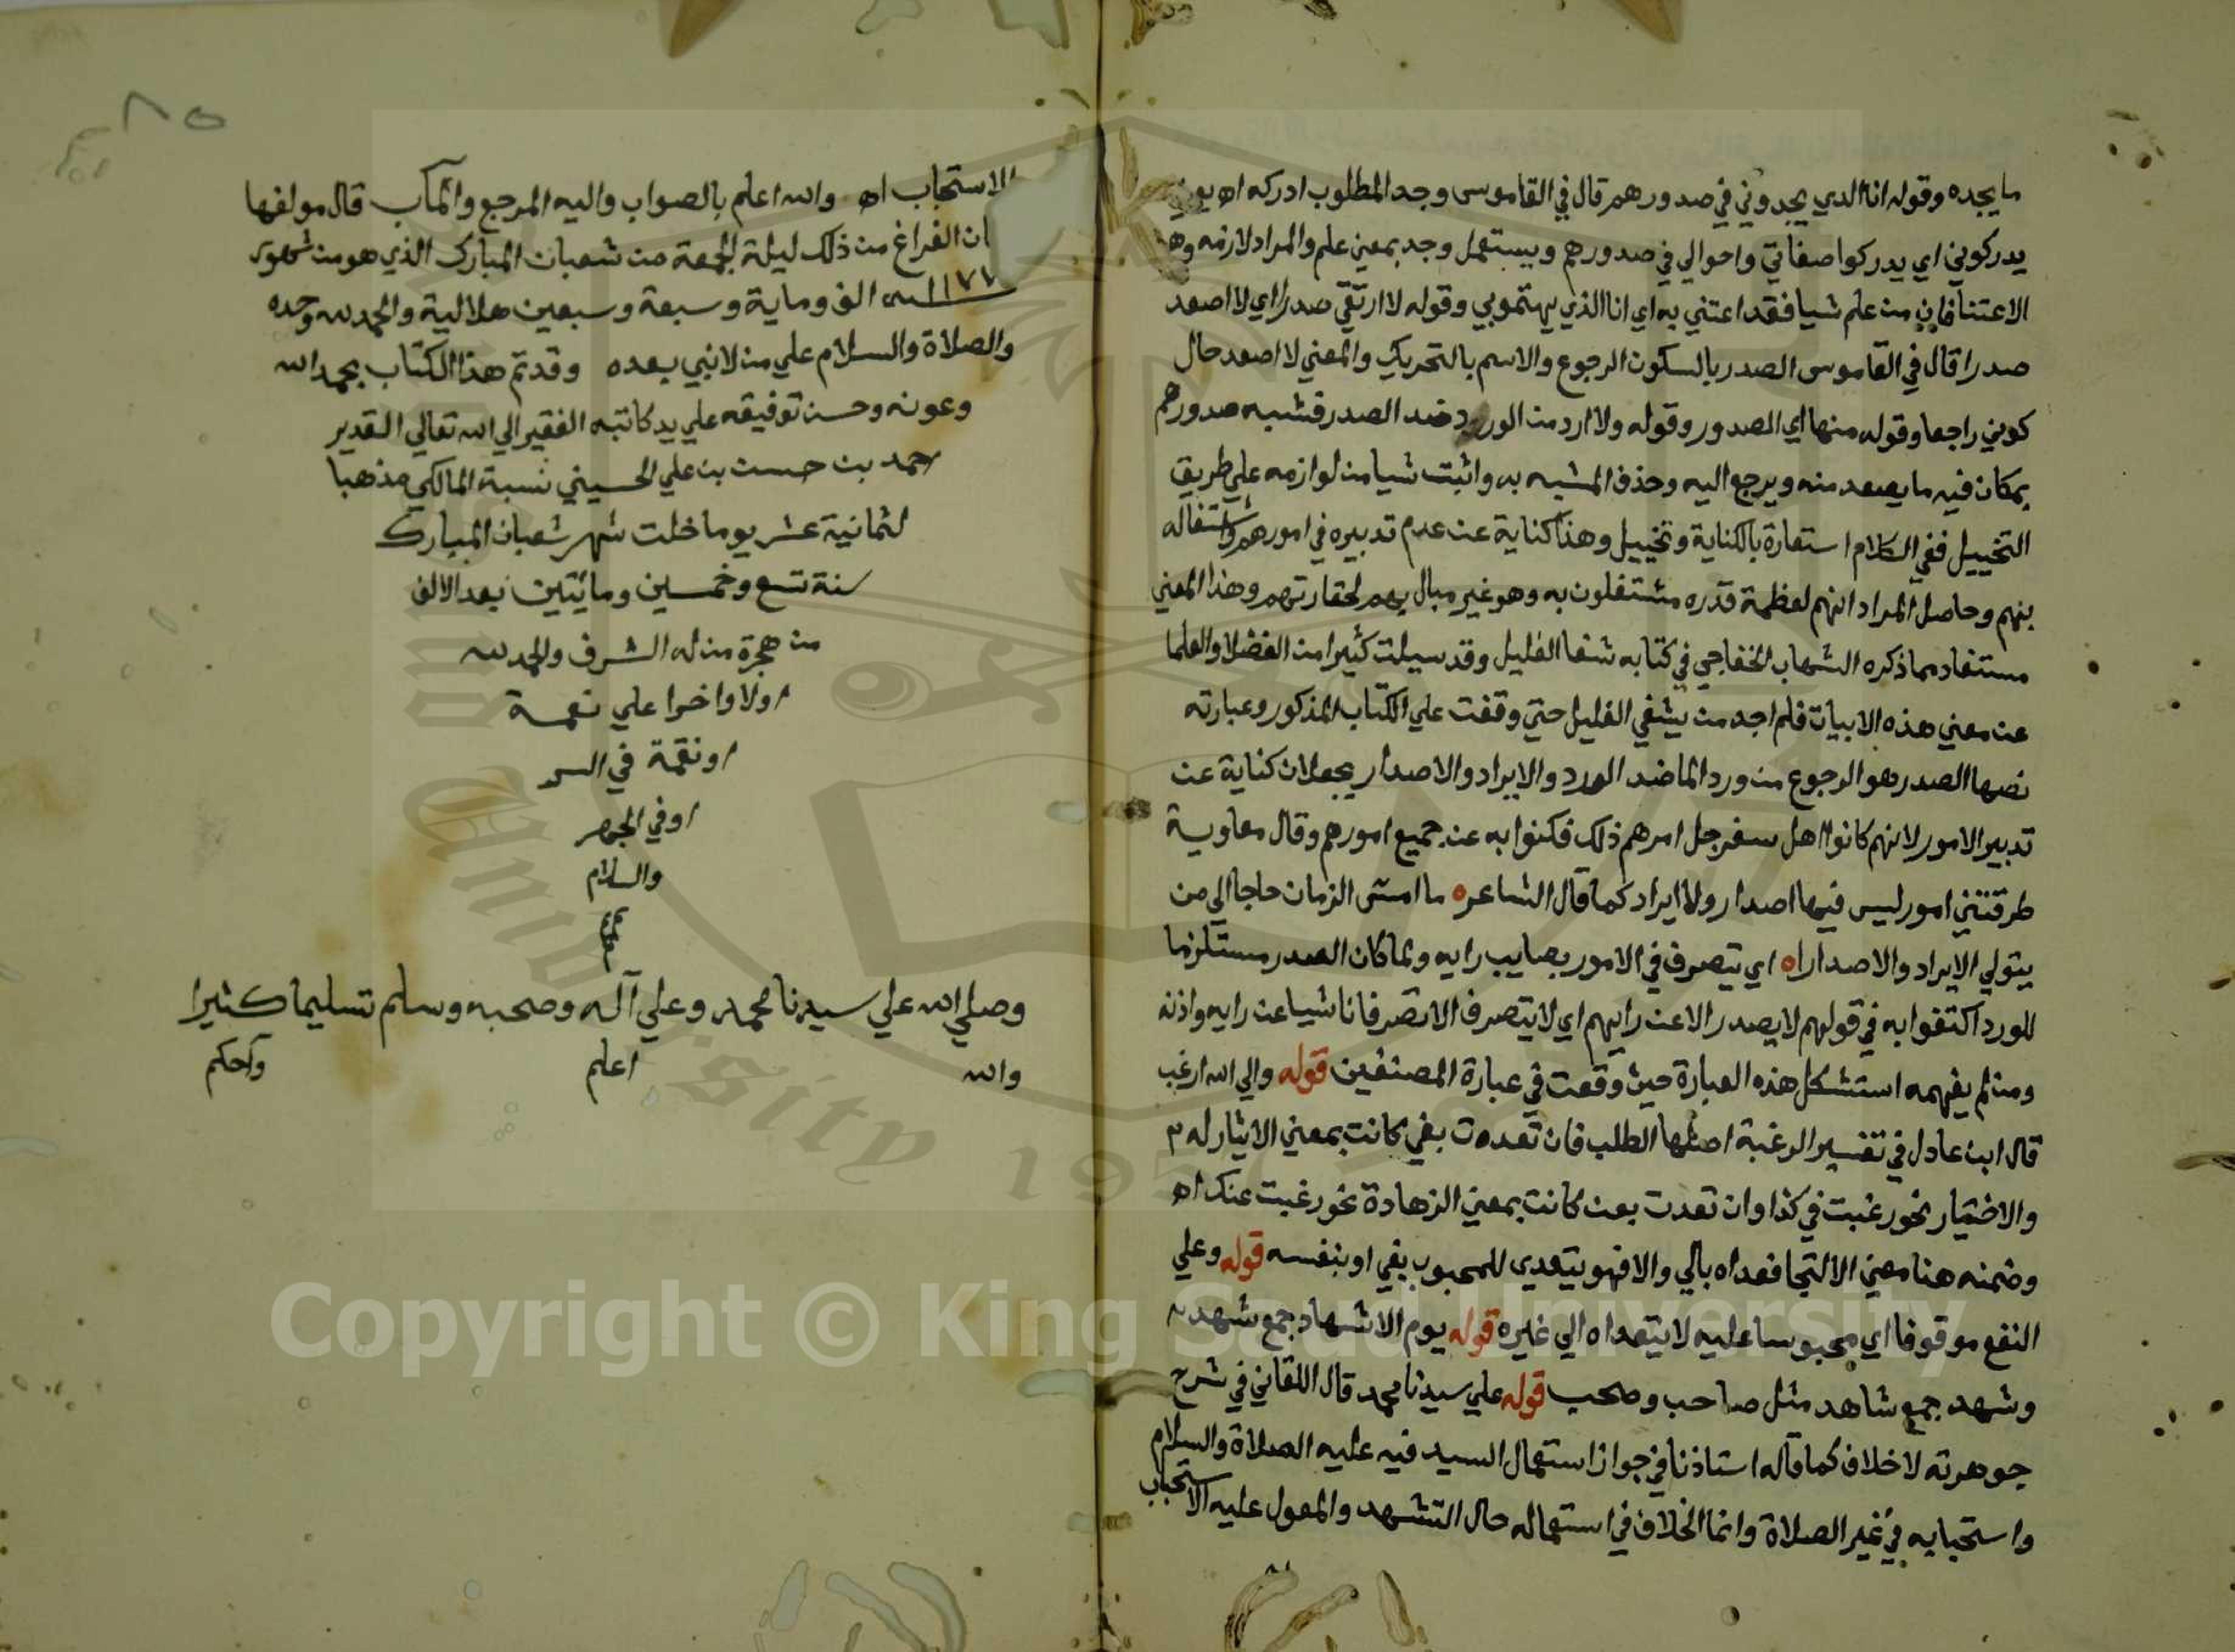 ما يجده وقوله انا الدي يجدوني في صدورهم قال في القاموس وجد المطلوب ادركه اه
يدركوني اي يدركوا صفاتي واحوالي في صدورهم ويستعمل وجد بمعني علم والمراد لازمه
الاعتنا فان من علم شيا فقد اعتني به اي انا الذي يهتموبي وقوله لا ارتقي صدرا اي لا اصعد
صدرا قال في القاموس الصدر بالسكون الرجوع والاسم بالتحريك والمعني لا اصعد حال
كوني راجعا وقوله منها اي الصدور وقوله ولا ارد من الورود ضد الصدر فشبه صدورهم
بمكان فيه ما يصعد منه ويرجع اليه وحذف المشبه به واثبت شيا من لوازمه علي طريق
التخييل ففي الكلام استعارة بالكناية وتخييل وهذا كناية عن عدم تدبيره في امورهم واشتغاله
بهم وحاصل المراد انهم لعظمة قدره مشتغلون به وهو غير مبال بهم لحقارتهم وهذا المعني
مستفاد مما ذكره الشهاب الخفاجي في كتابه شفا الغليل وقد سيلت كثيرا من الفضلا والعلما
عن معني هذه الابيات فلم اجد من يشفي الغليل حتي وقفت علي الكتاب المذكور وعبارته
نصها الصدر هو الرجوع من ورد الما ضد الورد والايراد والاصدار يجعلان كناية عن
تدبير الامور لانهم كانوا اهل سفر جل امرهم ذلك فكنوا به عن جميع امورهم وقال معاوية
طرقتني امور ليس فيها اصدار ولا ايراد كما قال الشاعر ه ما امس الزمان حاجا الي من
يتولي الايراد والاصدارا ه اي يتصرف في الامور بصايب رايه ولما كان الصدر مستلزما
للورد اكتفوا به في قولهم لا يصدر الا عن رايهم اي لا يتصرف الا تصرفا ناشيا عن رايه واذنه
ومن لم يفهمه استشكل هذه العبارة حيث وقعت في عبارة المصنفين قوله والي الله ارغب
قال ابن عادل في تفسير الرغبة اصلها الطلب فان تعدت بفي كانت بمعني الايثار له
والاختيار نحو رغبت في كذا وان تعدت بعن كانت بمعني الزهادة نحو رغبت عنك اه
وضمنه هنا معني الالتجا فعداه بالي والا فهو يتعدي للمحبوب بفي او بنفسه قوله وعلي
النفع موقوفا اي محبوسا عليه لا يتعداه الي غيره قوله يوم الاشهاد جمع شهد
وشهد جمع شاهد مثل صاحب وصحب قوله علي سيدنا محمد قال اللقاني في شرح
جوهرته لا خلاف كما قاله استاذنا في جواز استعمال السيد فيه عليه الصلاة والسلام
واستحبابه في غير الصلاة وانما الخلاف في استعماله حال التشهد والمعول عليه الاستحباب
الاستحباب اه والله اعلم بالصواب واليه المرجع والمآب قال مولفها
ان الفراغ من ذلك ليلة الجمعة من شعبان المبارك الذي هو من شهور
١١٧٧ الف وماية وسبعة وسبعين هلالية والحمد لله وحده
والصلاة والسلام علي من لا نبي بعده وقد تم هذا الكتاب بحمد الله
وعونه وحسن توفيقه علي يد كاتبه الفقير الي الله تعالي القدير
احمد بن حسن بن علي الحسيني نسبة المالكي مذهبا
لثمانية عشر يوما خلت شهر شعبان المبارك
سنة تسع وخمسين ومائيتين بعد الالف
من هجرة من له الشرف والحمد لله
اولا واخرا علي نعمة
او نقمة في السر
او في الجهر
والسلام
وصلي الله علي سيدنا محمد وعلي آله وصحبه وسلم تسليما كثيرا
والله اعلم واحكم
Copyright © King Saud University